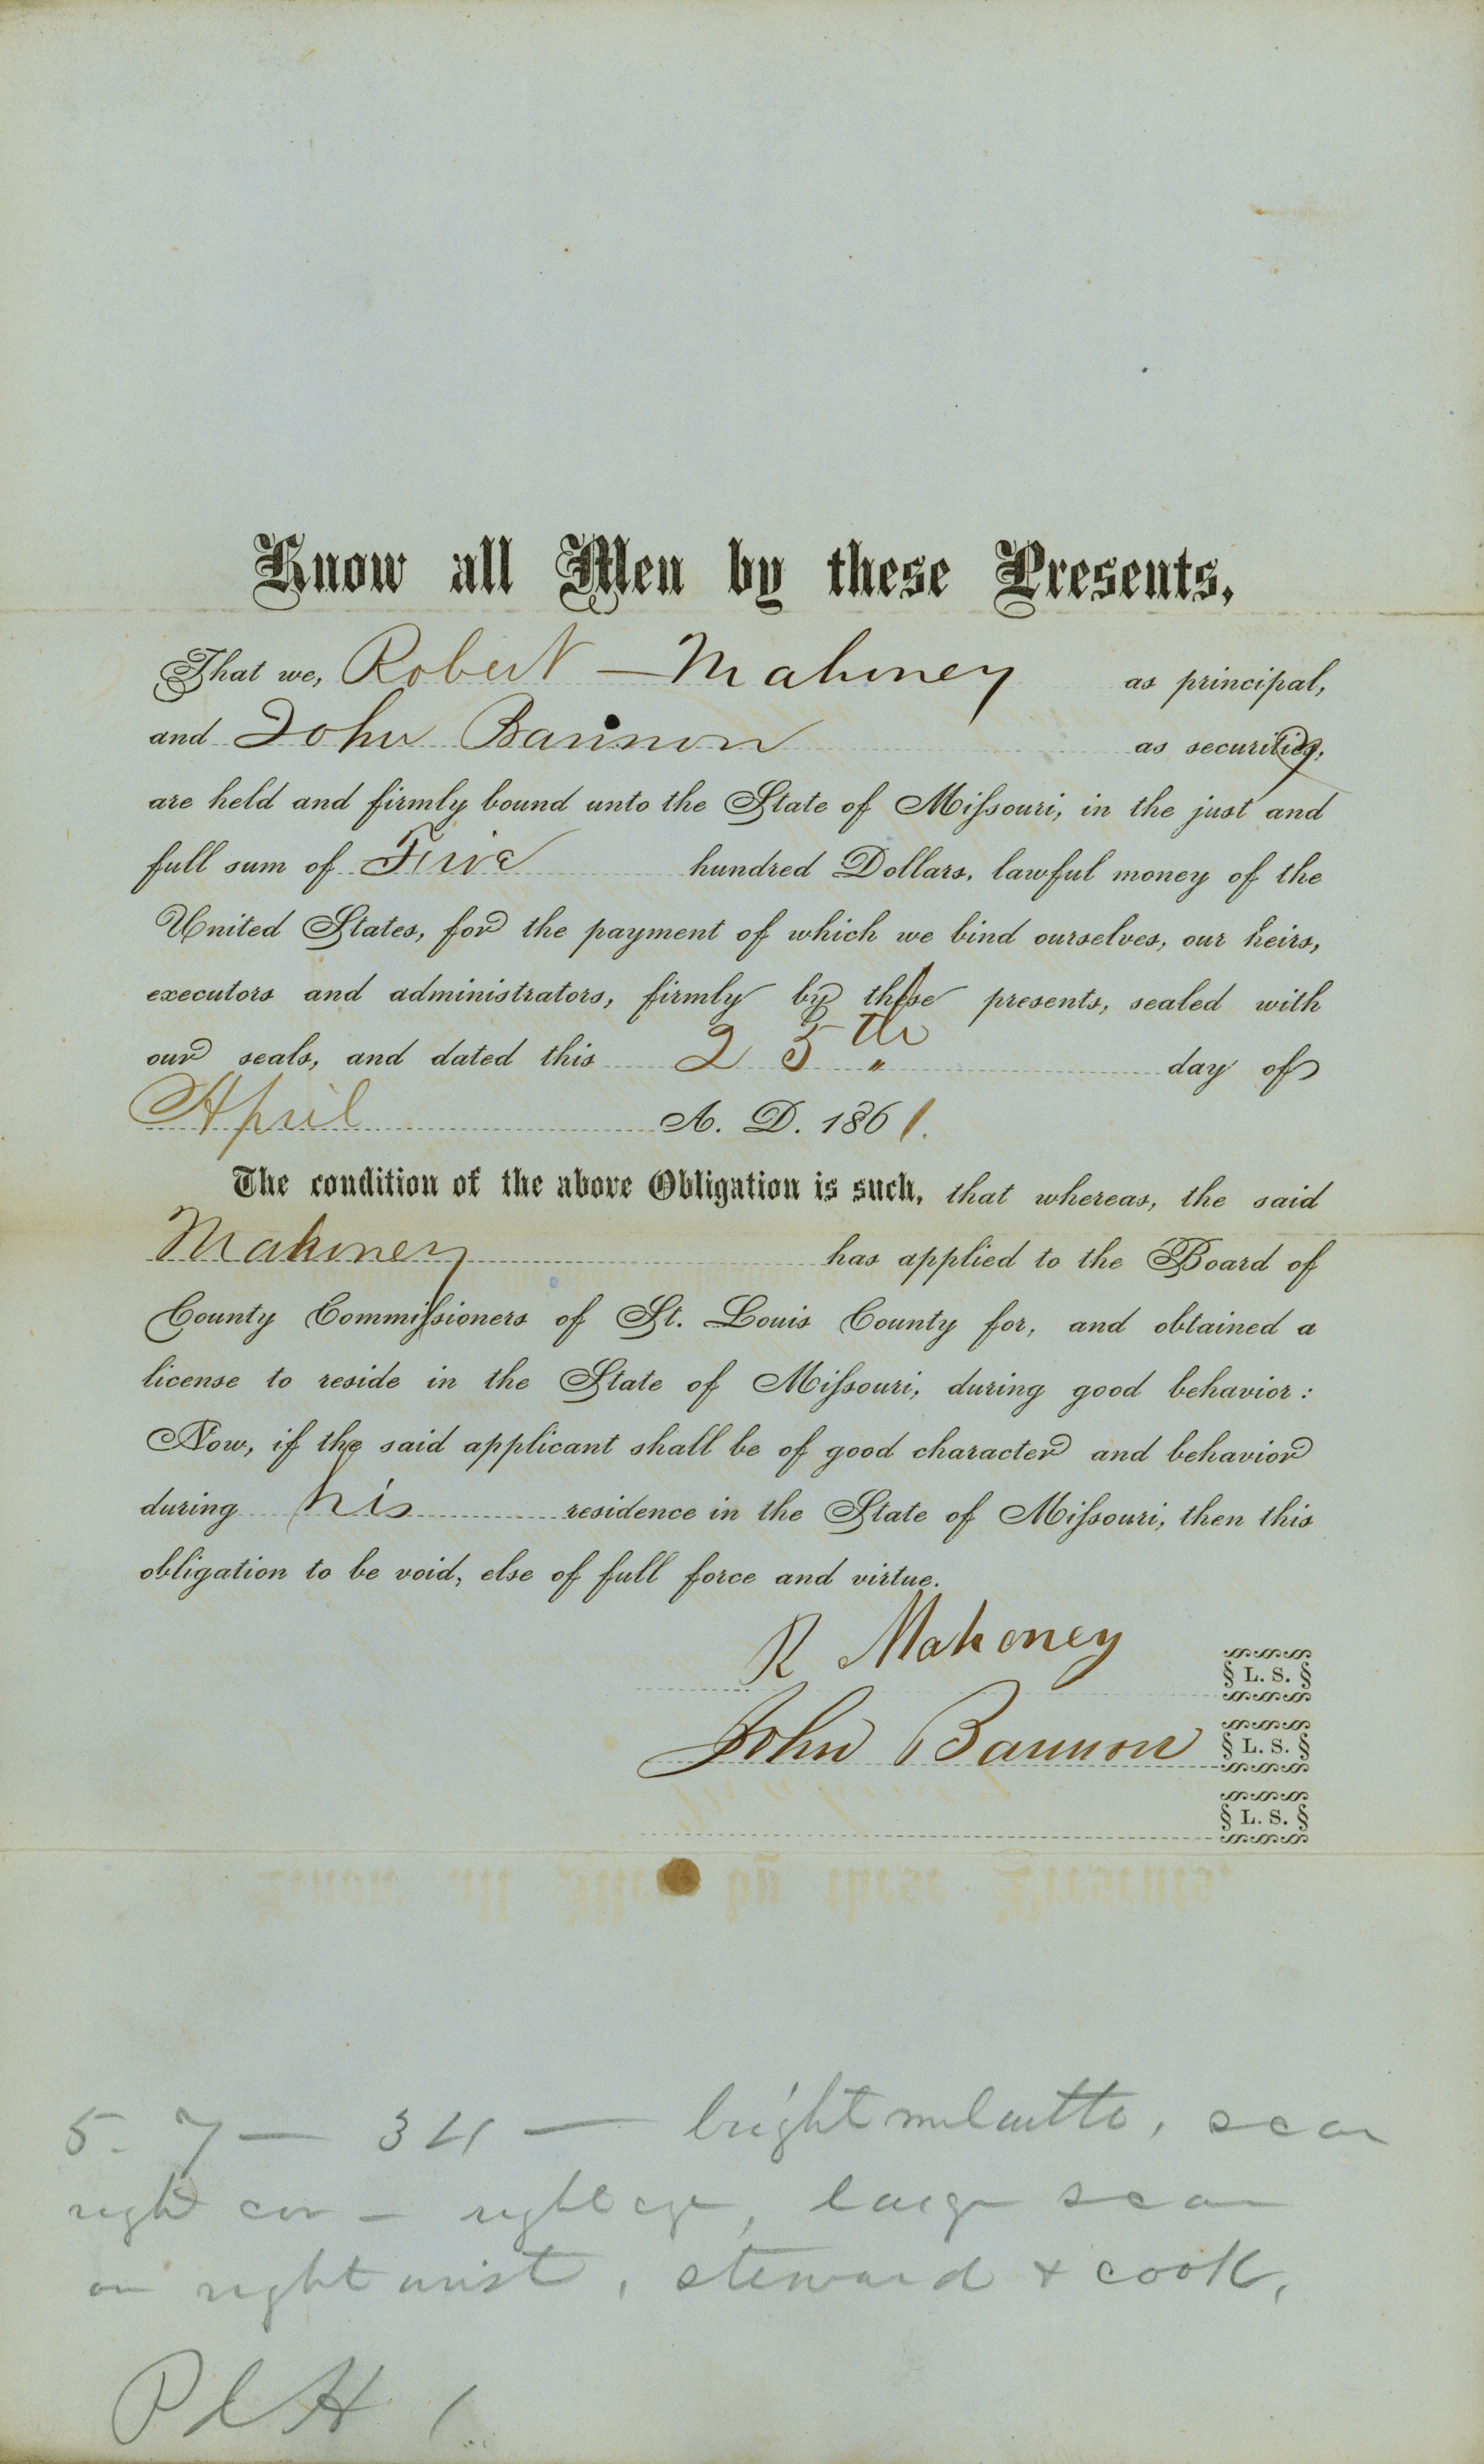 Know all Men by these Presents,
That we, Robert — Mahoney as principal,
and John Bannon as security,
are held and firmly bound unto the State of Missouri, in the just and
full sum of Five hundred Dollars, lawful money of the
United States, for the payment of which we bind ourselves, our heirs,
executors and administrators, firmly by these presents, sealed with
our seals, and dated this 25th day of
April A. D. 1861.
The condition of the above Obligation is such, that whereas, the said
Mahoney has applied to the Board of
County Commissioners of St. Louis County for, and obtained a
license to reside in the State of Missouri, during good behavior:
Now, if the said applicant shall be of good character and behavior
during his residence in the State of Missouri, then this
obligation to be void, else of full force and virtue.
R Mahoney § L. S. §
John Bannon § L. S. §
§ L. S. §
5. 7 — 34 — bright mulatto, scar
right cor — right eye, large scar
on right wrist, steward + cook,